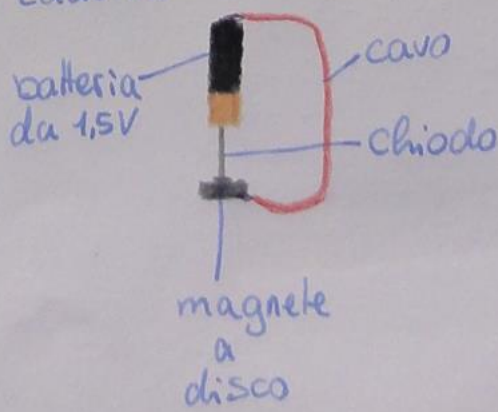 batteria
da 1,5V
cavo
chiodo
magnete
a
disco